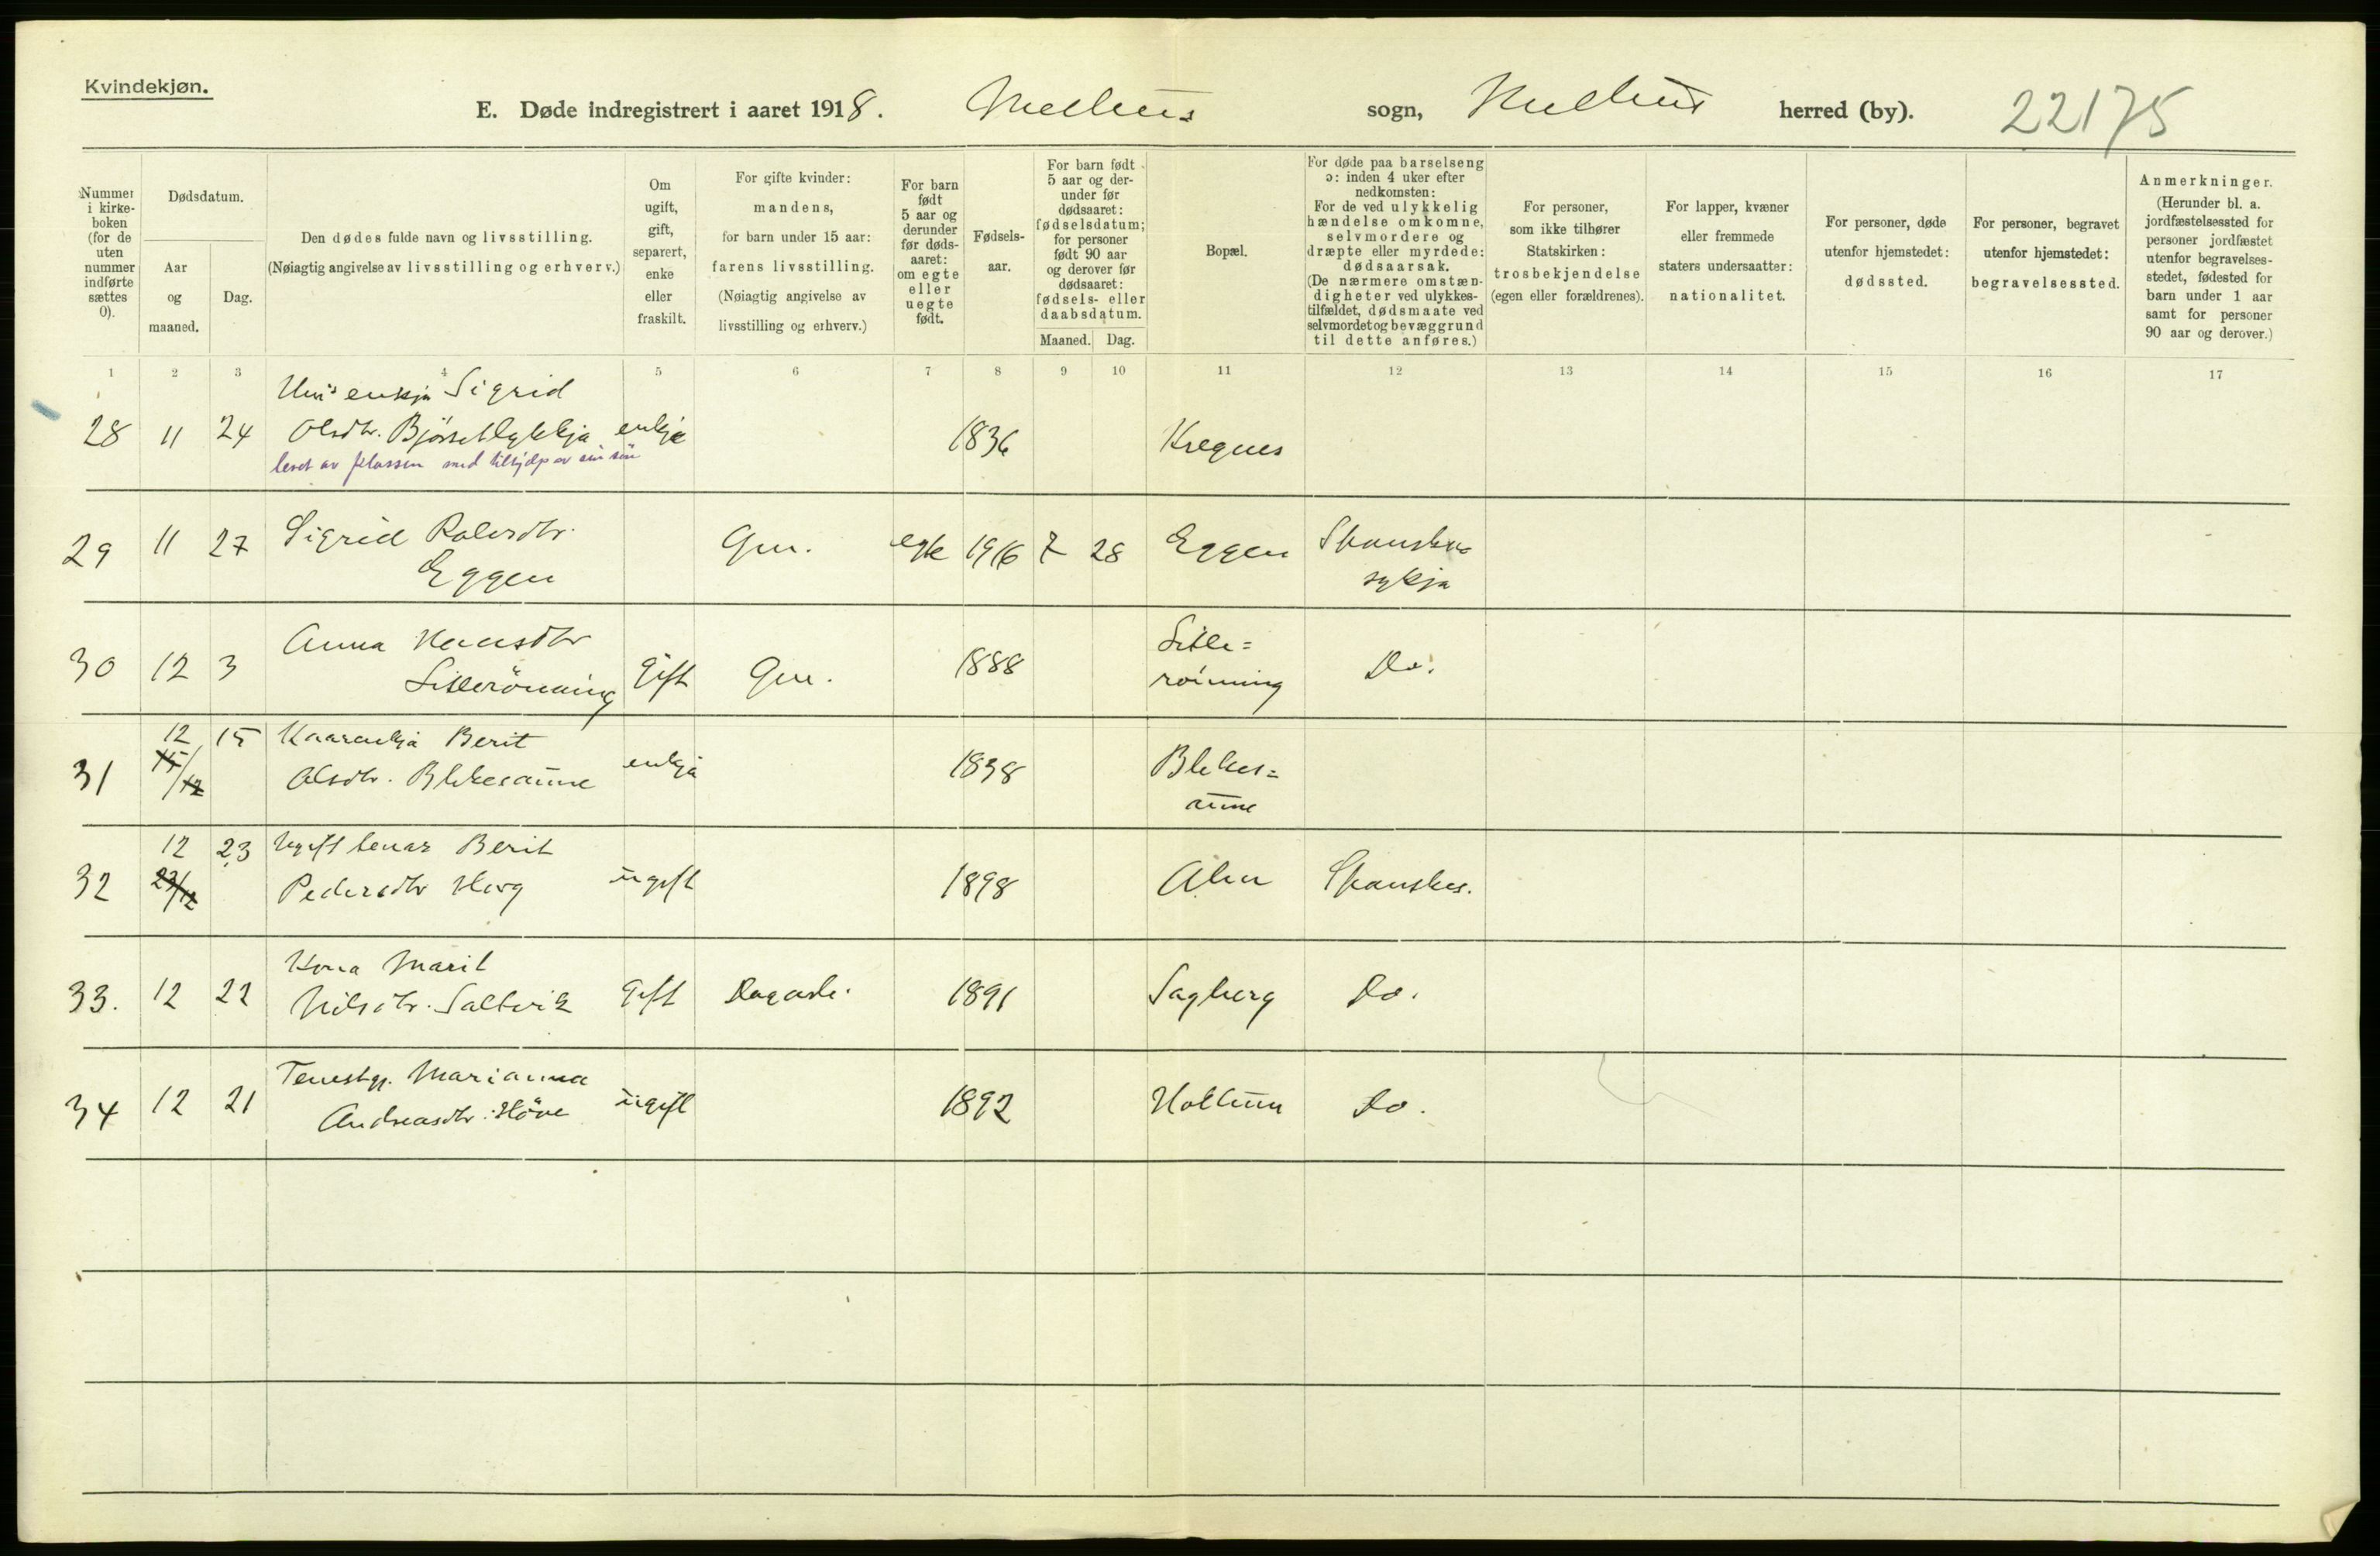 Kvindekjøn.
E. Døde indregistrert i aaret 1918. Melhus sogn, Melhus herred (by). 22175
Nummer i kirke-boken (for de uten nummer indførte sættes 0).
Dødsdatum.
Aar og maaned.
Dag.
Den dødes fulde navn og livsstilling.
(Nøiagtig angivelse av livsstilling og erhverv.)
Om ugift, gift, separert, enke eller fraskilt.
For gifte kvinder: mandens, for barn under 15 aar: farens livsstilling. (Nøiagtig angivelse av livsstilling og erhverv.)
For barn født 5 aar og derunder før døds-aaret: om egte eller uegte født.
Fødsels-aar.
For barn født 5 aar og der-under før dødsaaret: fødselsdatum; for personer født 90 aar og derover før dødsaaret: fødsels- eller daabsdatum.
Maaned. Dag.
Bopæl.
For døde paa barselseng ɔ: inden 4 uker efter nedkomsten: For de ved ulykkelig hændelse omkomne, selvmordere og dræpte eller myrdede: dødsaarsak. (De nærmere omstæn-digheter ved ulykkes-tilfældet, dødsmaate ved selvmordet og bevæggrund til dette anføres.)
For personer, som ikke tilhører Statskirken: trosbekjendelse (egen eller forældrenes).
For lapper, kvæner eller fremmede staters undersaatter: nationalitet.
For personer, døde utenfor hjemstedet: dødssted.
For personer, begravet utenfor hjemstedet: begravelsessted.
Anmerkninger. (Herunder bl. a. jordfæstelsessted for personer jordfæstet utenfor begravelses-stedet, fødested for barn under 1 aar samt for personer 90 aar og derover.)
1 2 3 4 5 6 7 8 9 10 11 12 13 14 15 16 17
enkja Sigrid
28 11 24 Olsdtr. enkje 1836 Kregnes
levet av med tilhjælp av sin
29 11 27 Sigrid egte 1916 7 28 Eggen Spanske
Eggen sykja
30 12 3 Anna Hansdtr Gift Gm. 1888 Lille=
Lillerönning rönning Do.
31 12 15 Berit
15/12 Olsdtr. Blekesaune enkja 1838 Blekes=
aune
32 12 23 Ugift Berit
23/12 Pedersdtr ugift 1898 Spanskes.
33. 12 22 Kona Marit
Nilsdtr. Saltvik Gift 1891 Sagberg Do.
34 12 21 Marianna
Andreasdtr. Höve ugift 1892 Do.